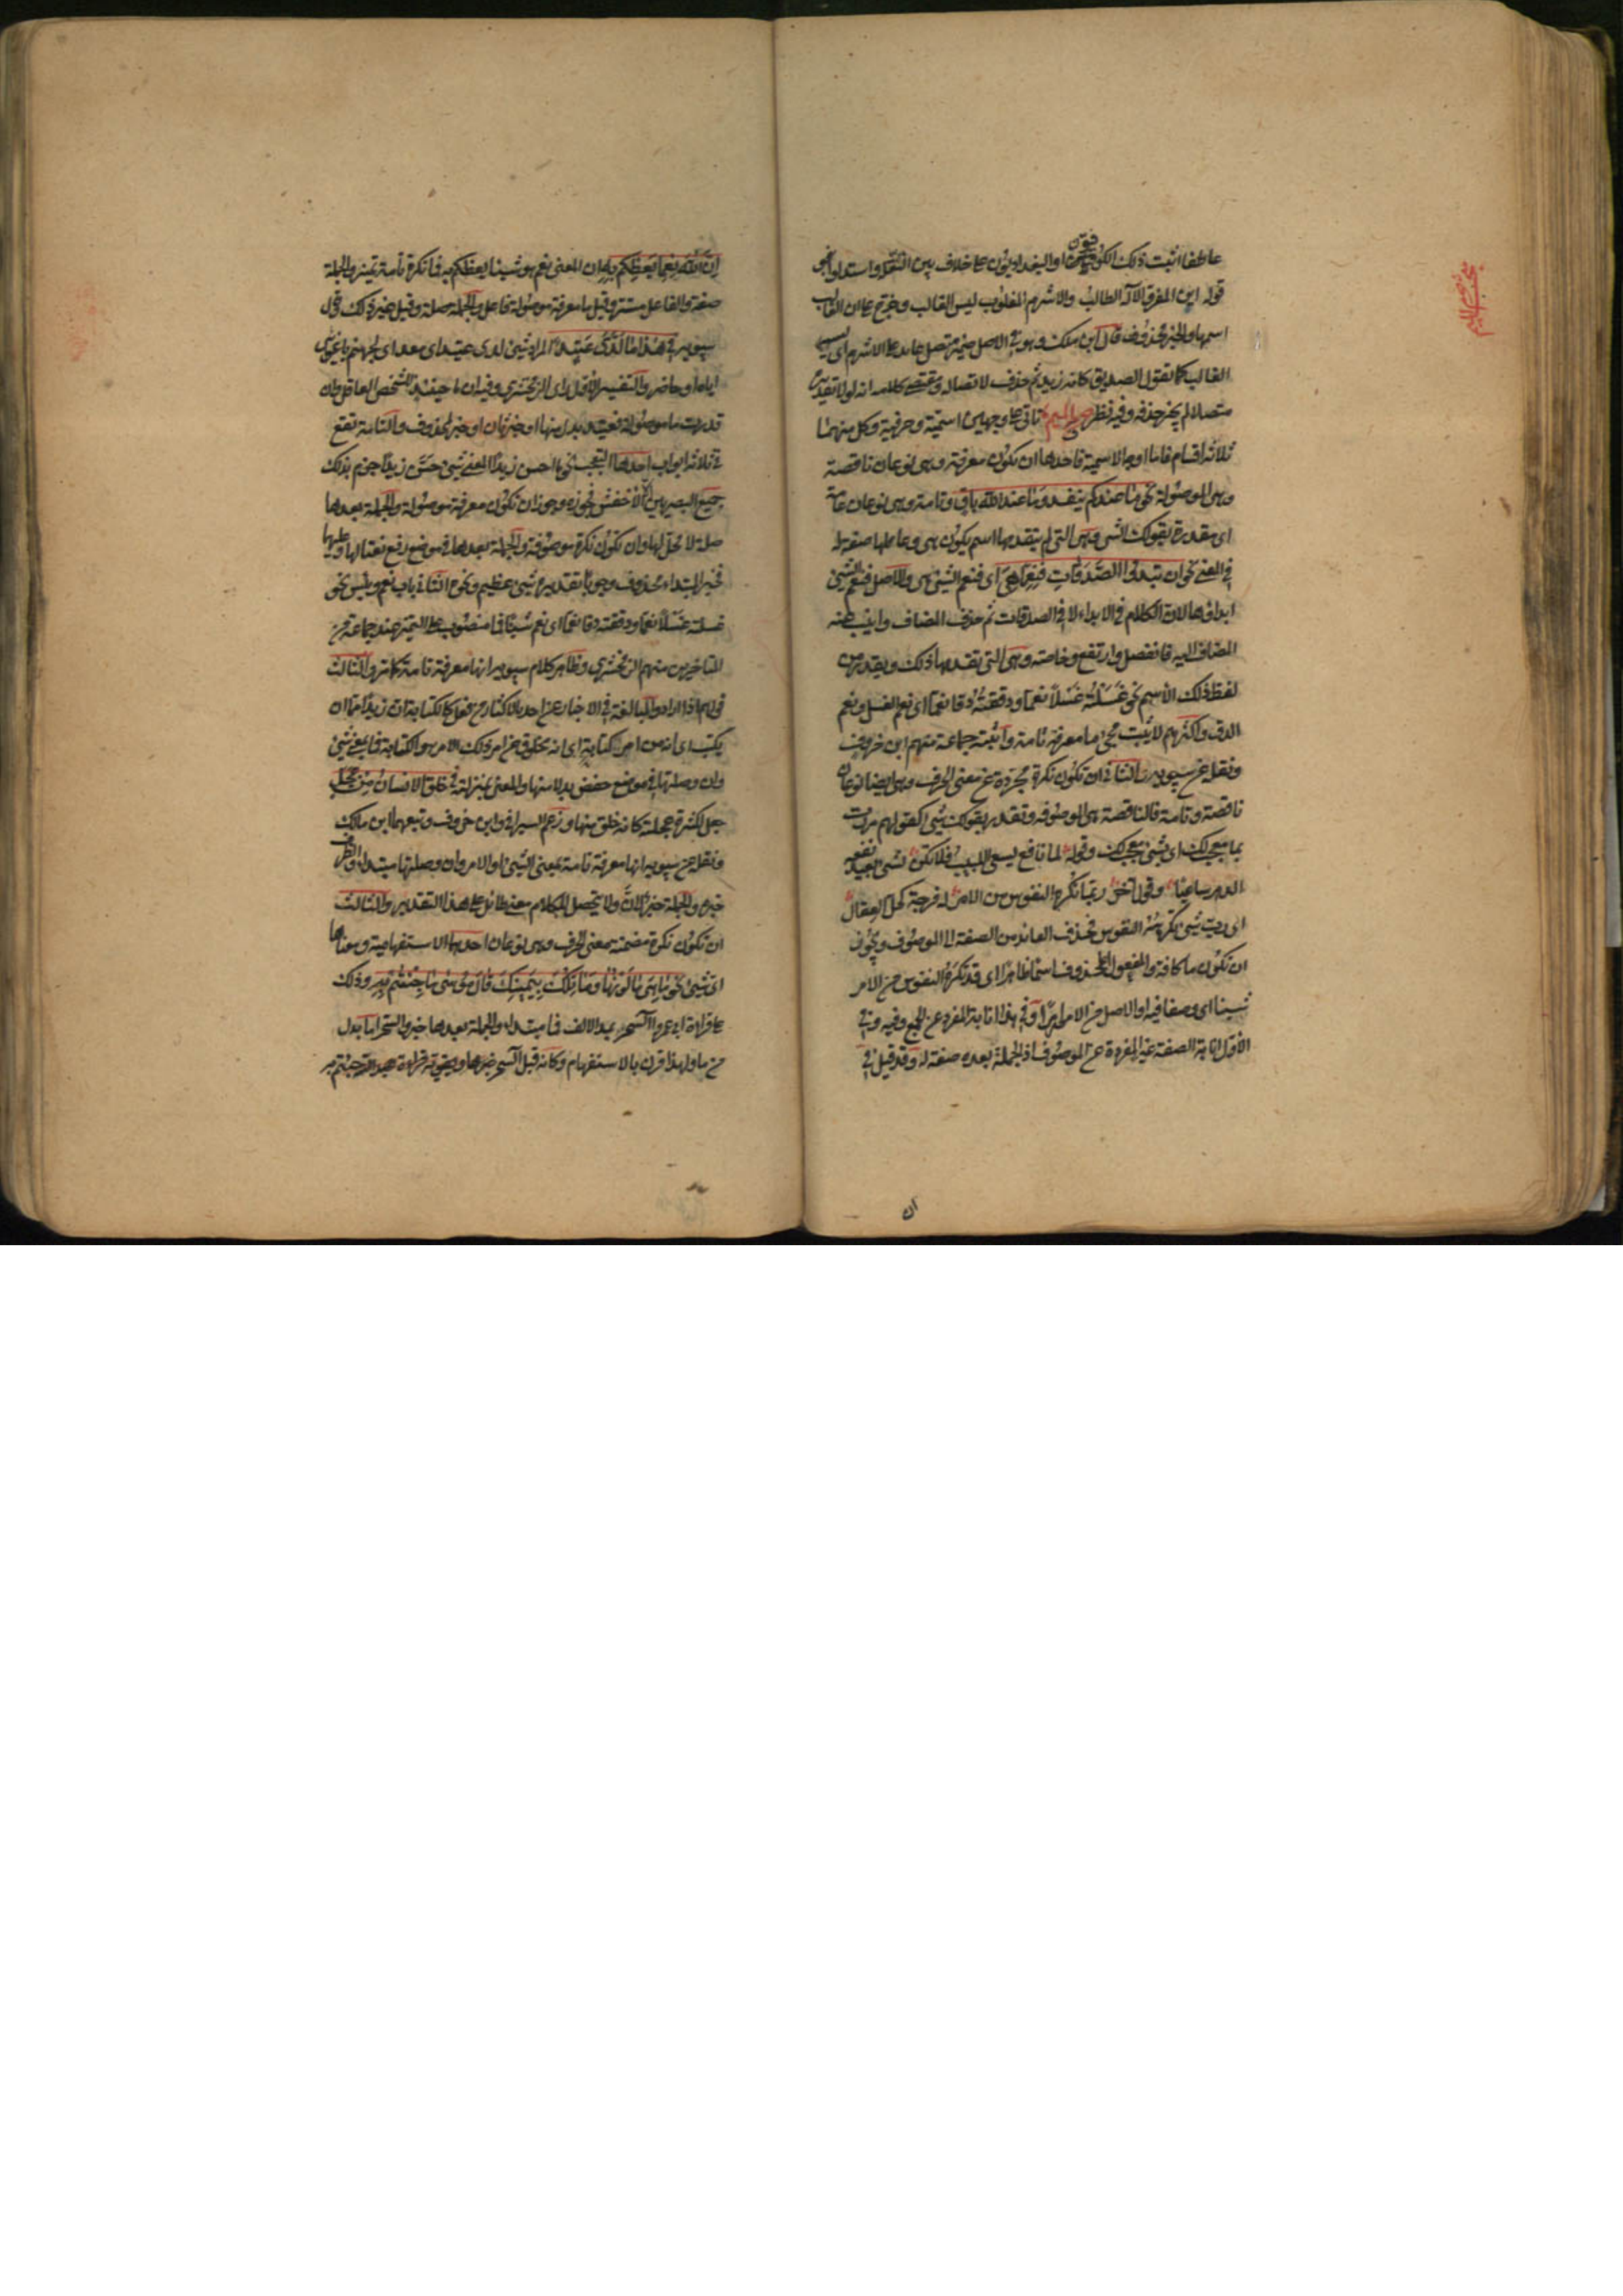 عاطفا اثبت ذلك الكوفيون او البغداديون على خلاف بين النقلة واستدلوا بنحو
قوله اين المفر والاله الطالب والاشرم المغلوب ليس الغالب وخرج على ان الغالب
اسمها والخبر محذوف قال ابن مالك وهو في الاصل ضمير متصل عايد على الاشرم اى ليسه
الغالب كما تقول الصديق كانه زيد ثم حذف لاتصاله ومقتضى كلامه انه لولا تقديره
متصلا لم يجز حذفه وفيه نظر حرف الميم ما تاتى على وجهين اسمية وحرفية وكل منهما
ثلاثة اقسام فاما اوجه الاسمية فاحدها ان تكون معرفة وهى نوعان ناقصة
وهى الموصولة نحو ما عندكم ينفد وما عند الله باق وتامة وهى نوعان عامة
اى مقدرة بقولك الشى وهى التى لم يتقدمها اسم يكون هى وعاملها صفة له
فى المعنى نحو ان تبدوا الصدقات فنعما هى اى فنعم الشئ هى والاصل فنعم الشئ
ابداؤها لان الكلام فى الابداء لا فى الصدقات ثم حذف المضاف وانيب عنه
المضاف اليه فانفصل وارتفع وخاصة وهى التى تقدمها ذلك ويقدر من
لفظ ذلك الاسم نحو غسلته غسلا نعما ودققته دقا نعما اى نعم الغسل ونعم
الدق واكثرهم لا يثبت مجئ ما معرفة تامة واثبته جماعة منهم ابن خروف
ونقله عن سيبويه والثانى ان تكون نكرة مجردة عن معنى الحرف وهى ايضا نوعان
ناقصة وتامة فالناقصة هى الموصوفة وتقدر بقولك شى كقولهم مررت
بما معجب لك اى بشئ معجب لك وقوله لما نافع يسعى اللبيب فلا تكن لشئ بعيد نفعه
الدهر ساعيا وقول اخر ربما تكره النفوس من الامر له فرجة كحل العقال
اى رب شئ تكرهه النفوس فحذف العائد من الصفة الى الموصوف ويجوز
ان تكون ما كافة والمفعول المحذوف اسما ظاهرا اى قد تكره النفوس من الامر
شيئا اى وصفا فيه او الاصل من الامور امرا وفى هذا انابة المفرد عن الجمع وفيه وفى
الاول انابة الصفة غير المفردة عن الموصوف اذ الجملة بعده صفة له وقد قيل فى
ان
ان الله نعما يعظكم به ان المعنى نعم هو شيئا يعظكم به فما نكرة تامة تمييز والجملة
صفة والفاعل مستتر وقيل ما معرفة موصولة فاعل والجملة صلة وقيل غير ذلك وقال
سيبويه فى هذا ما لدى عتيد المراد شئ لدى عتيد اى معد اى لجهنم باغوائى
اياه او حاضر والتفسير الاول راى الزمخشرى وفيه ان ما حينئذ للشخص العاقل وان
قدرت ما موصولة فعتيد بدل منها او خبر ثان او خبر لمحذوف والتامة تقع
فى ثلاثة ابواب احدها التعجب نحو ما احسن زيدا المعنى شئ حسن زيدا جزم بذلك
جميع البصريين الا الاخفش فجوزه وجوز ان تكون معرفة موصولة والجملة بعدها
صلة لا محل لها وان تكون نكرة موصوفة والجملة بعدها فى موضع رفع نعتا لها وعليهما
فخبر المبتداء محذوف وجوبا تقديره شئ عظيم ونحوه الثانى باب نعم وبئس نحو
غسلته غسلا نعما ودققته دقا نعما اى نعم شيئا فما منصوب على التمييز عند جماعة من
المتاخرين منهم الزمخشرى وظاهر كلام سيبويه انها معرفة تامة كما مر والثالث
قولهم اذا ارادوا المبالغة فى الاخبار عن احد بالاكثار من فعل كالكتابة ان زيدا مما ان
يكتب اى انه من امر كتابة اى انه مخلوق من امر وذلك الامر هو الكتابة فما بمعنى شئ
وان وصلتها فى موضع خفض بدلا منها والمعنى بمنزلته فى خلق الانسان من عجل
جعل لكثرة عجلته كانه خلق منها وزعم السيرافى وابن خروف وتبعهما ابن مالك
ونقله عن سيبويه انها معرفة تامة بمعنى الشئ او الامر وان وصلتها مبتداء والظرف
خبره والجملة خبر لان ولا يتحصل للكلام معنى طائل على هذا التقدير والثالث
ان تكون نكرة مضمنة بمعنى الحرف وهى نوعان احدهما الاستفهامية ومعناها
اى شئ نحو ما هى ما لونها وما تلك بيمينك قال موسى ما جئتم به وذلك
على قراءة ابى عمرو آلسحر بمد الالف فما مبتداء والجملة بعدها خبر والسحر اما بدل
من ما ولهذا قرن بالاستفهام وكانه قيل آلسحر جئتم به